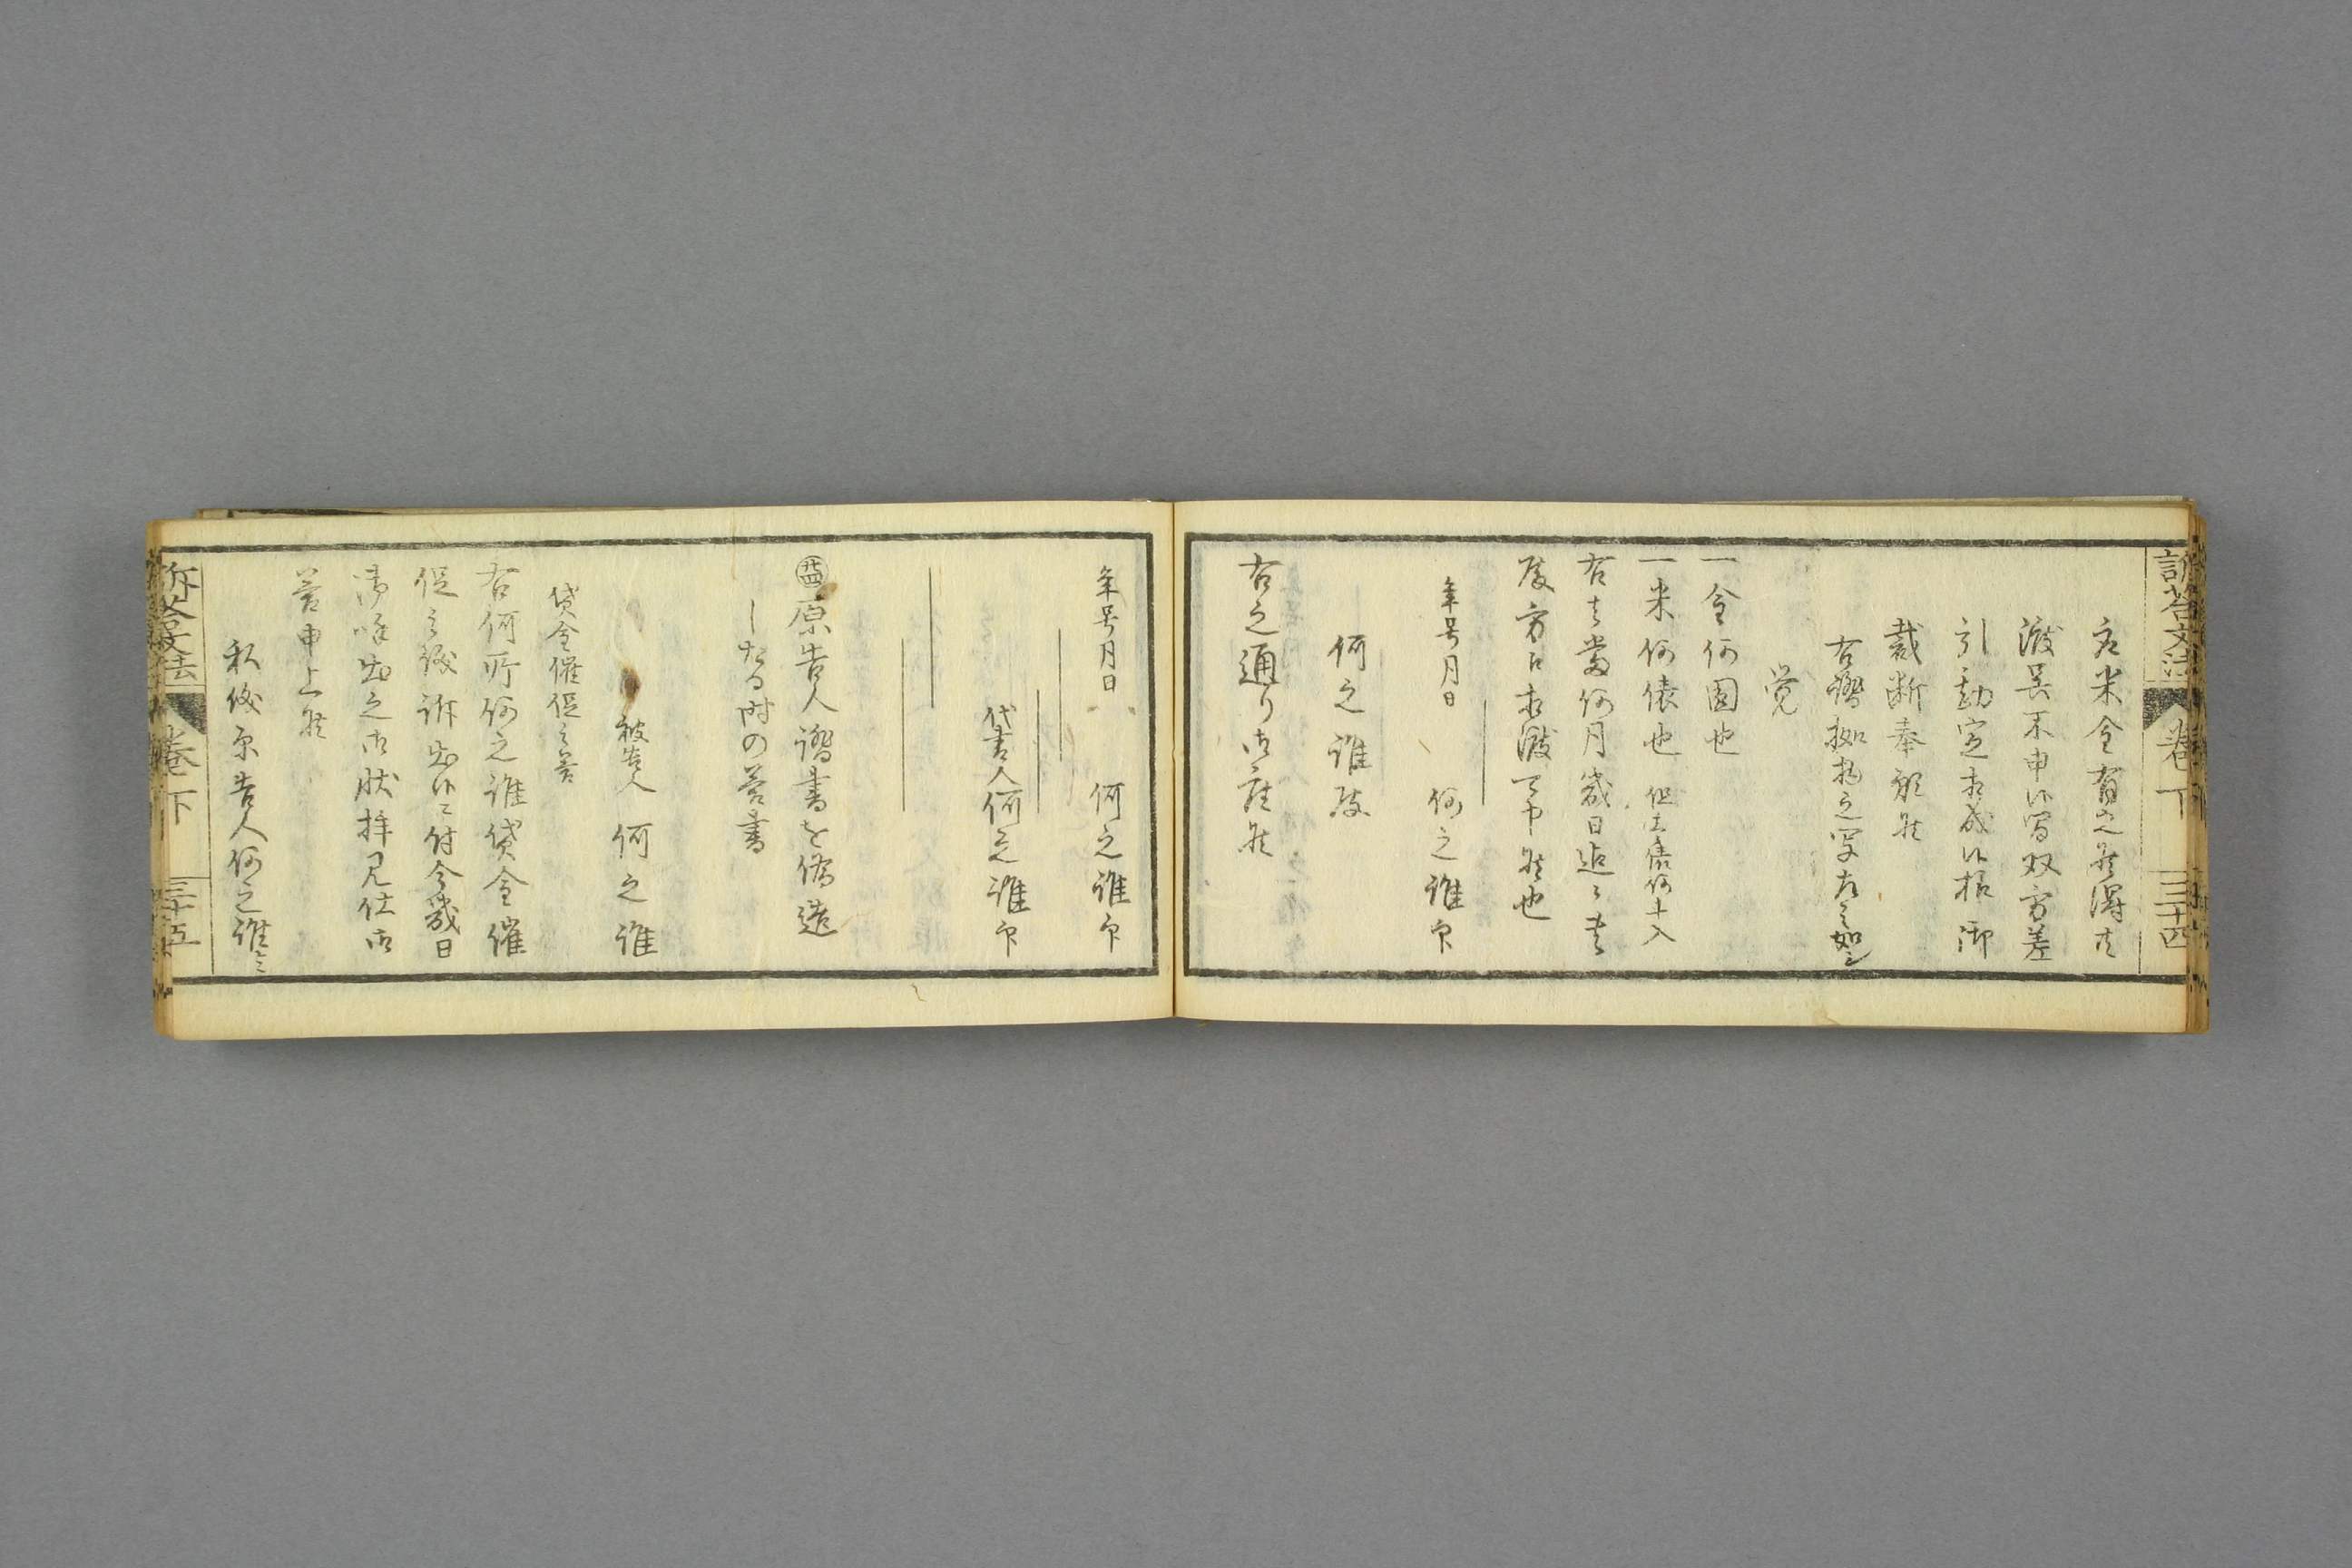 訴答文法 巻下 三十四
渡呉不申候間双方差
引勘定相成候様御
裁断奉願候
右證拠物之写左之如シ
覚
一金何圓也
一米何俵也 但壱俵何斗入
右者當何月幾日迄ニ
度方江相渡可申候也
年号月日 何之誰印
何之誰殿
右之通リ御座候
年号月日 何之誰印
代書人何之誰印
原告人證書を偽造
したる時の答書
被告人 何之誰
貸金催促之答
右何所何之誰貸金催
促之儀訴出候ニ付今幾日
御呼出之御状拝見仕御
答申上候
私儀原告人何之誰ニ
訴答文法 巻下 三十五